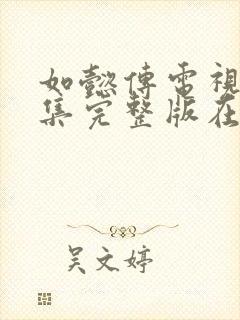 如懿傳電視
集完整版在
吳文婷